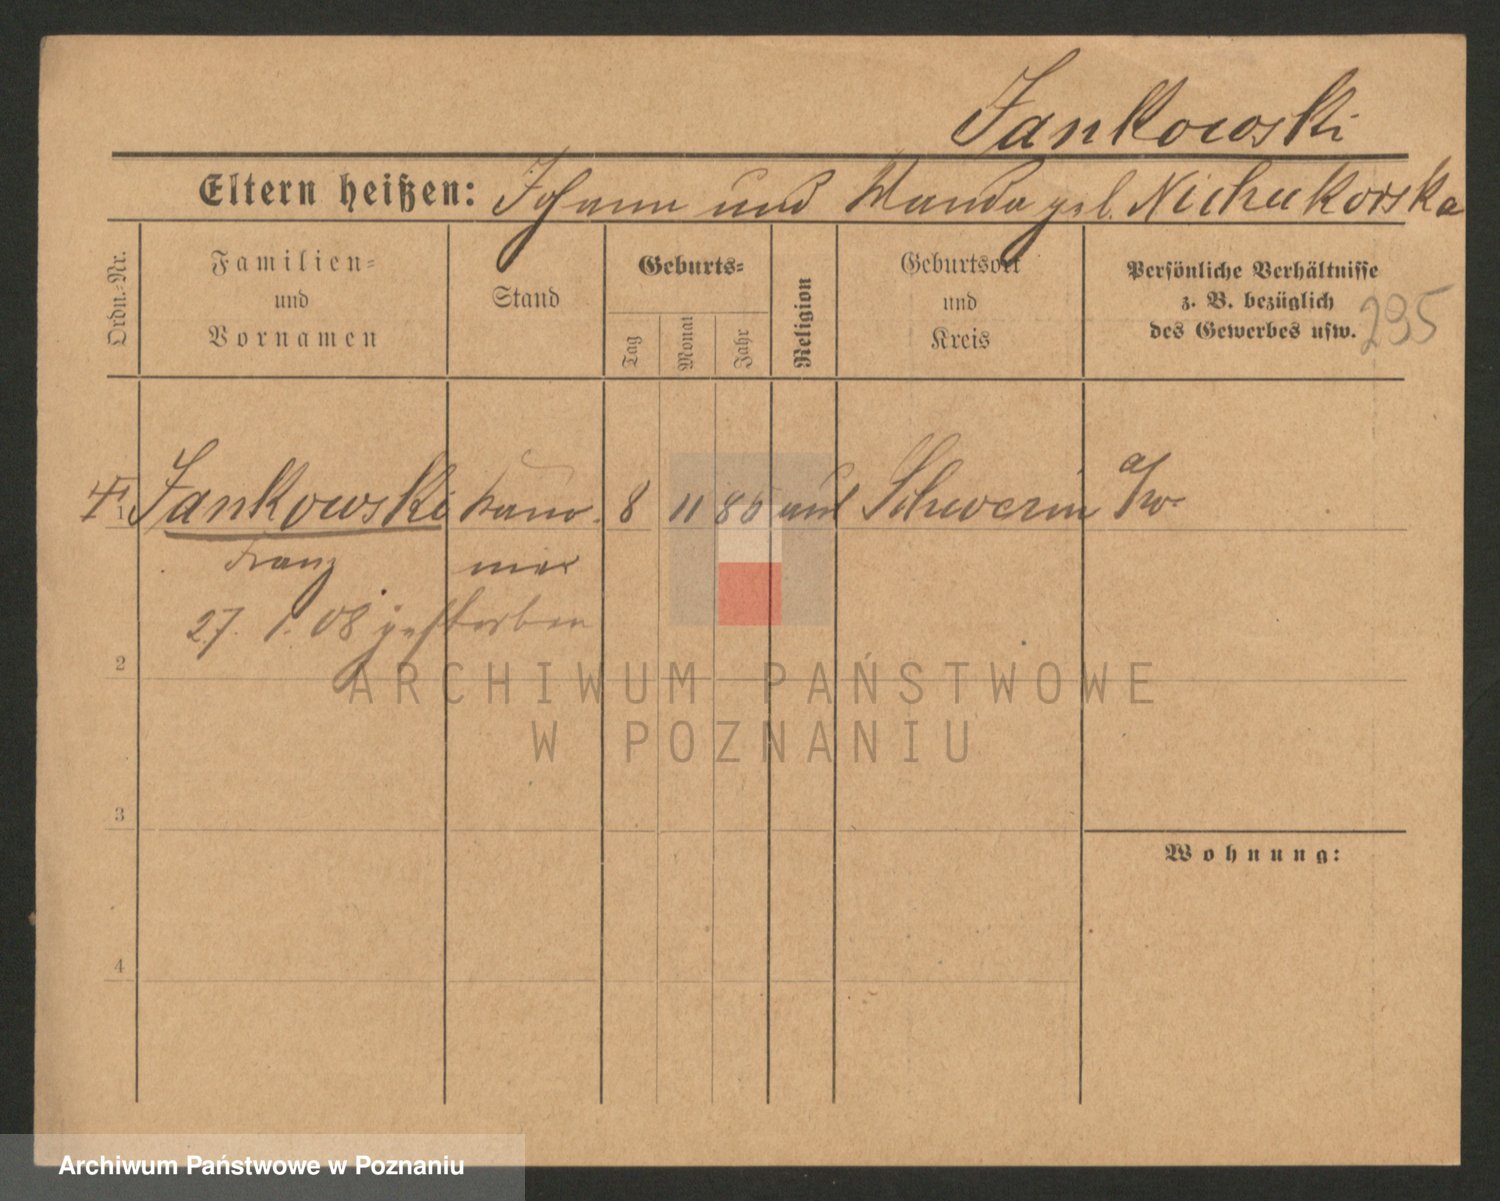 Jankowski
Eltern heißen: Johann und Wanda geb. Nichukorska
Ordn.-Nr.
Familien-
und
Vornamen
Stand
Geburts-
Tag
Monat
Jahr
Religion
Geburtsort
und
Kreis
Persönliche Verhältnisse
z. B. bezüglich
des Gewerbes usw.
295
1 Jankowski 8 11 Schwerin a/w
Franz
27. 1. 08 gestorben
2
3
4
Wohnung:
ARCHIWUM PAŃSTWOWE
W POZNANIU
Archiwum Państwowe w Poznaniu